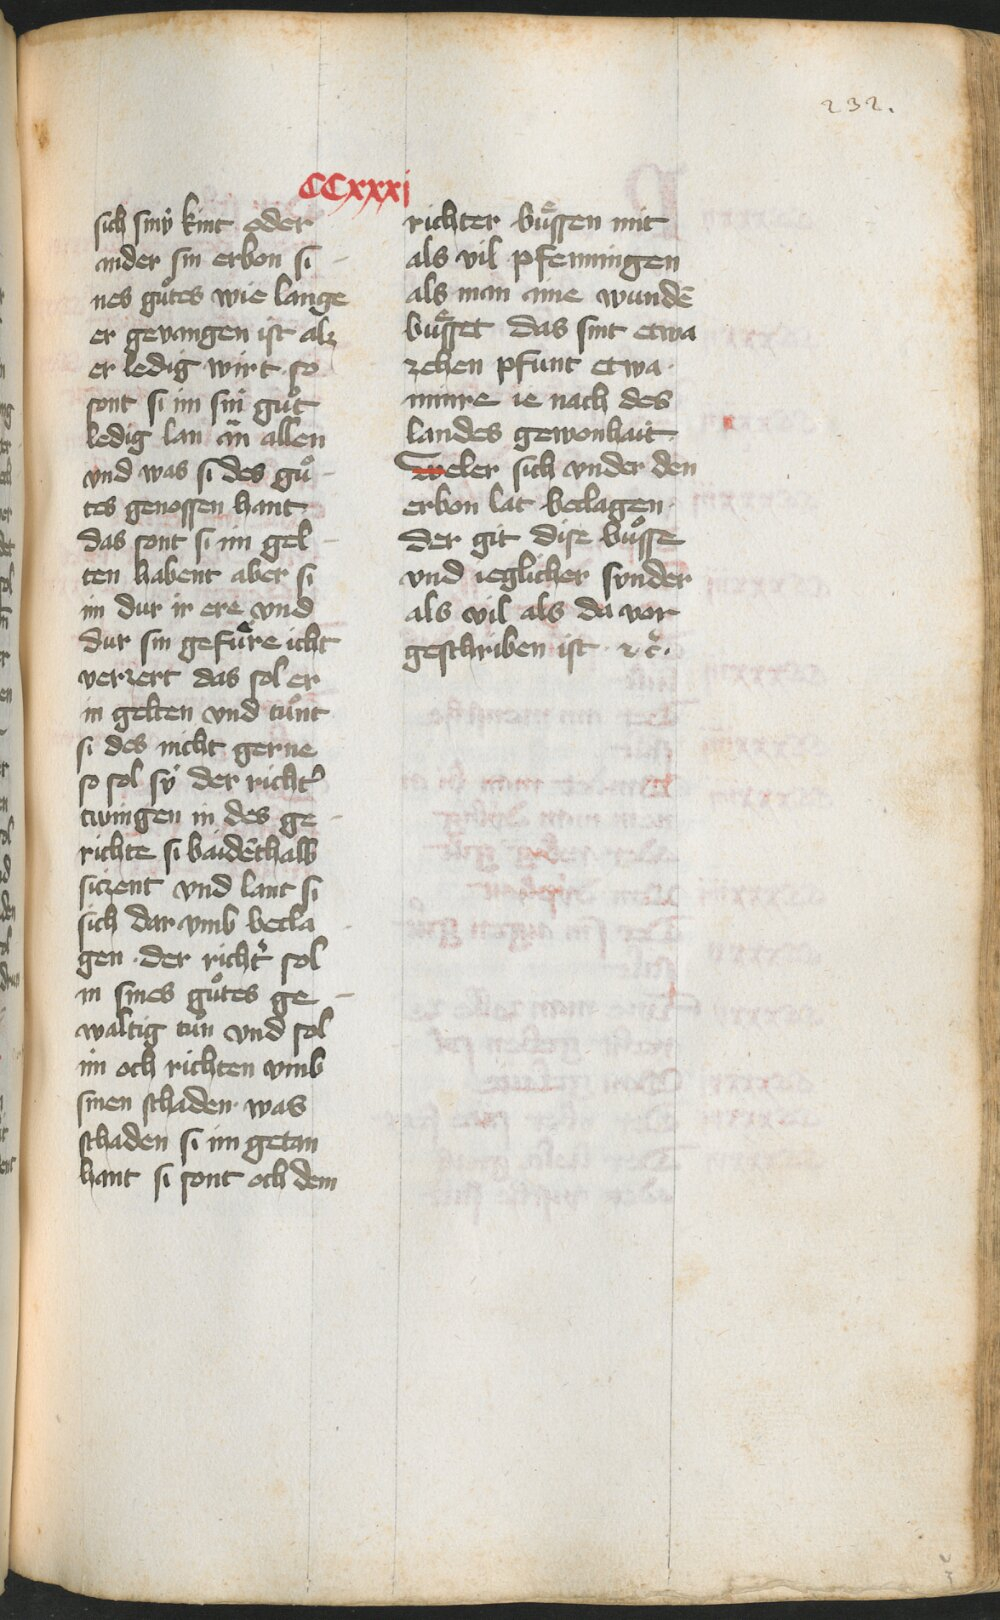 232.
CCxxxj
sich sinÿ kint oder
ander sin erbon si
nes guͦtes wie lange
er gevangen ist alz
er ledig wirt so
sont si im sin guͦt
ledig lan an allen
vnd was si des guͦ
tes genossen hant
das sont si im gel
ten habent aber si
im dur ir ere vnd
dur sin gefuͤre icht
verzert das sol er
in gelten vnd tuͦnt
si des nicht gerne
so sol sÿ der richt͛
twingen in des ge
richte si baidēthalb
siczent vnd lant si
sich dar vmb becla
gen · der richt͛ sol
in sines guͦtes ge
waltig tuͦn vnd sol
im och richten vmb
sinen schaden · was
schaden si im getan
hant si sont och dem
richter buͤssen mit
als vil pfenningen
als man aine wundē
buͤsset das sint etwa
zehen pfunt etwa ·
minre ie nach des
landes gewonhait
Weler sich vnder den
erbon lat beclagen ·
der git dise buͦsse
vnd ieglicher synder
als vil als da vor
geschriben ist · ⁊ c̃ ·